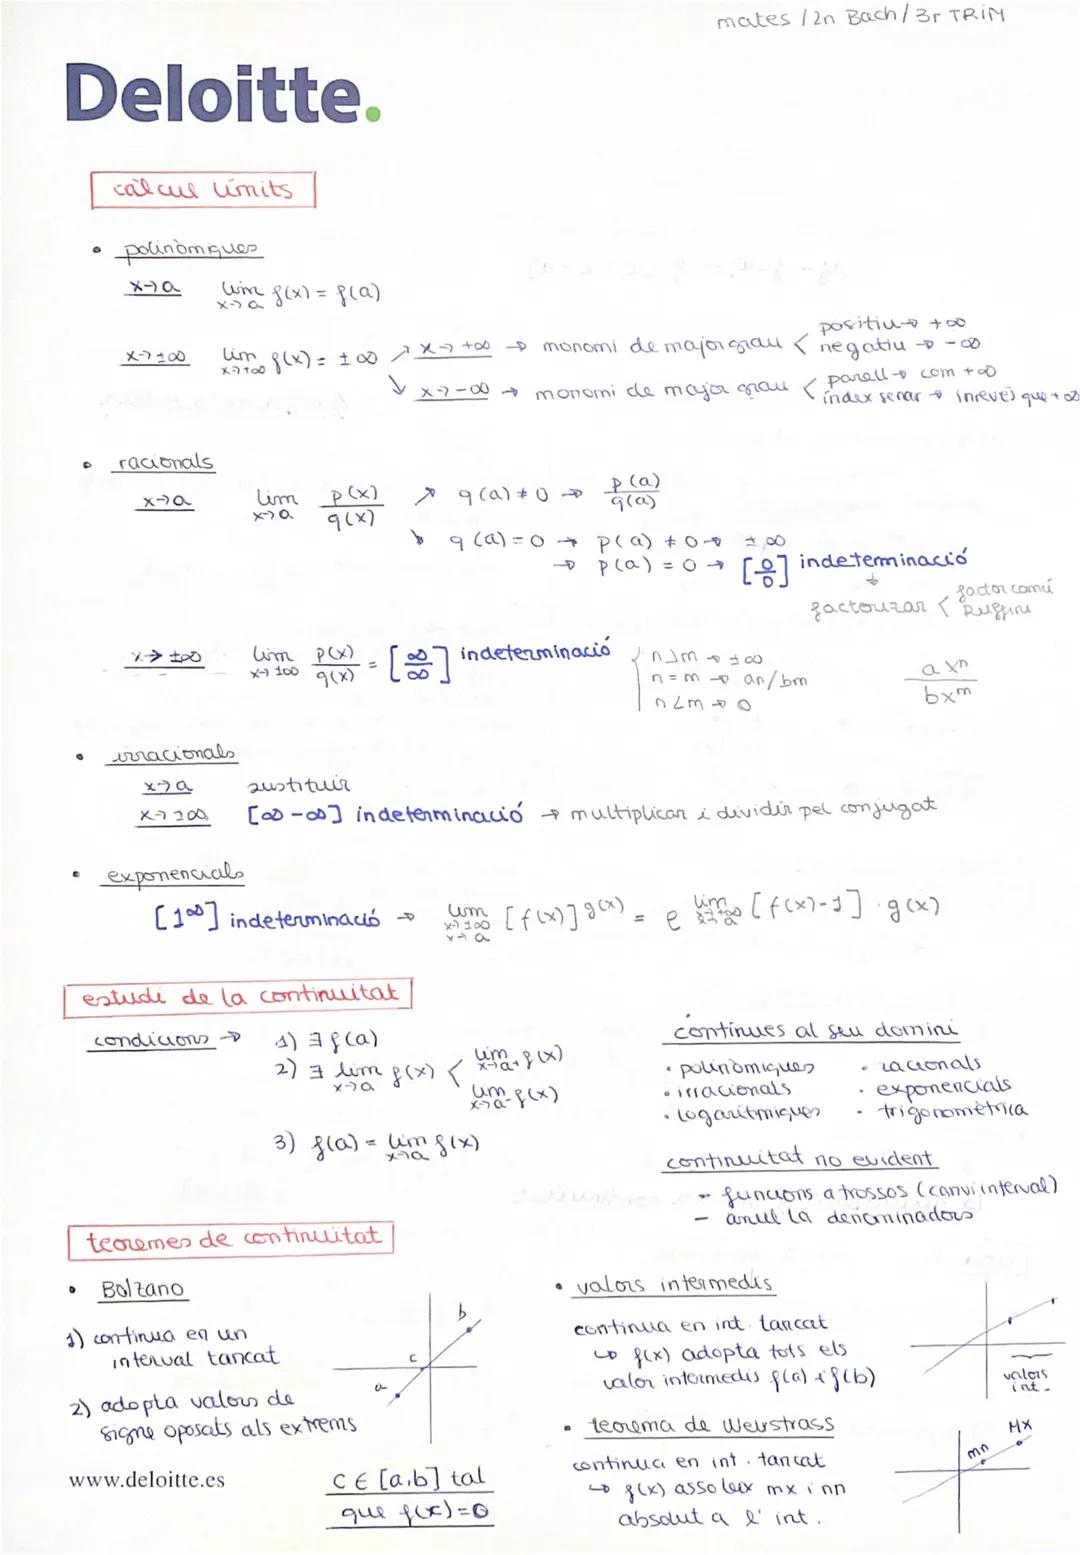 mates / 2n Bach / 3r TRiM
Deloitte.
càlcul límits
• polinòmiques
x→a lim x→a f(x) = f(a)
x→±∞ lim x→±∞ f(x) = ±∞ ↗ x→+∞ → monomi de major grau < positiu → +∞
negatiu → -∞
↘ x→-∞ → monomi de major grau < parell → com +∞
índex senar → inrevés que +∞
• racionals
x→a lim x→a p(x)/q(x) ↗ q(a) ≠ 0 → p(a)/q(a)
↘ q(a) = 0 → p(a) ≠ 0 → ±∞
→ p(a) = 0 → [0/0] indeterminació
↓
factoritzar < factor comú
Ruffini
x→±∞ lim x→±∞ p(x)/q(x) = [∞/∞] indeterminació { n>m → ±∞
n=m → an/bm
n<m → 0
axⁿ/bxᵐ
• irracionals
x→a sustituir
x→±∞ [∞-∞] indeterminació → multiplicar i dividir pel conjugat
• exponencials
[1^∞] indeterminació → lim x→±∞ x→a [f(x)]^g(x) = e^lim x→±∞ x→a [f(x)-1]·g(x)
estudi de la continuitat
condicions → 1) ∃ f(a)
2) ∃ lim x→a f(x) < lim x→a⁺ f(x)
lim x→a⁻ f(x)
3) f(a) = lim x→a f(x)
contínues al seu domini
• polinòmiques • racionals
• irracionals • exponencials
• logarítmiques • trigonomètrica
continuitat no evident
- funcions a trossos (canvi interval)
- anul·la denominadors
teoremes de continuïtat
• Bolzano
1) continua en un
interval tancat
2) adopta valors de
signe oposats als extrems
a
c
b
C ∈ [a,b] tal
que f(x)=0
• valors intermedis
continua en int. tancat
↳ f(x) adopta tots els
valor intermedis f(a) i f(b)
valors
int.
• teorema de Weirstrass
continua en int. tancat
↳ f(x) assoleix mx i mn
absolut a l'int.
mn
MX
www.deloitte.es